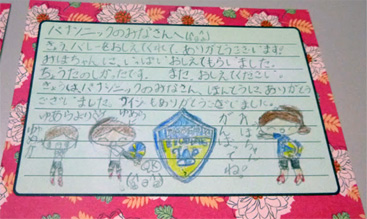 パナソニックのみなさんへ
きょう、バレーをおしえてくれて、ありがとうございます!
みほちゃんに、いっぱいおしえてもらいました。
ちょうたのしかったです。 また、おしえてください。
きょうはパナソニックのみなさん、ほんとうにありがとう
ございました。 サインもありがとうございました。
ゆあより
がんばってね。